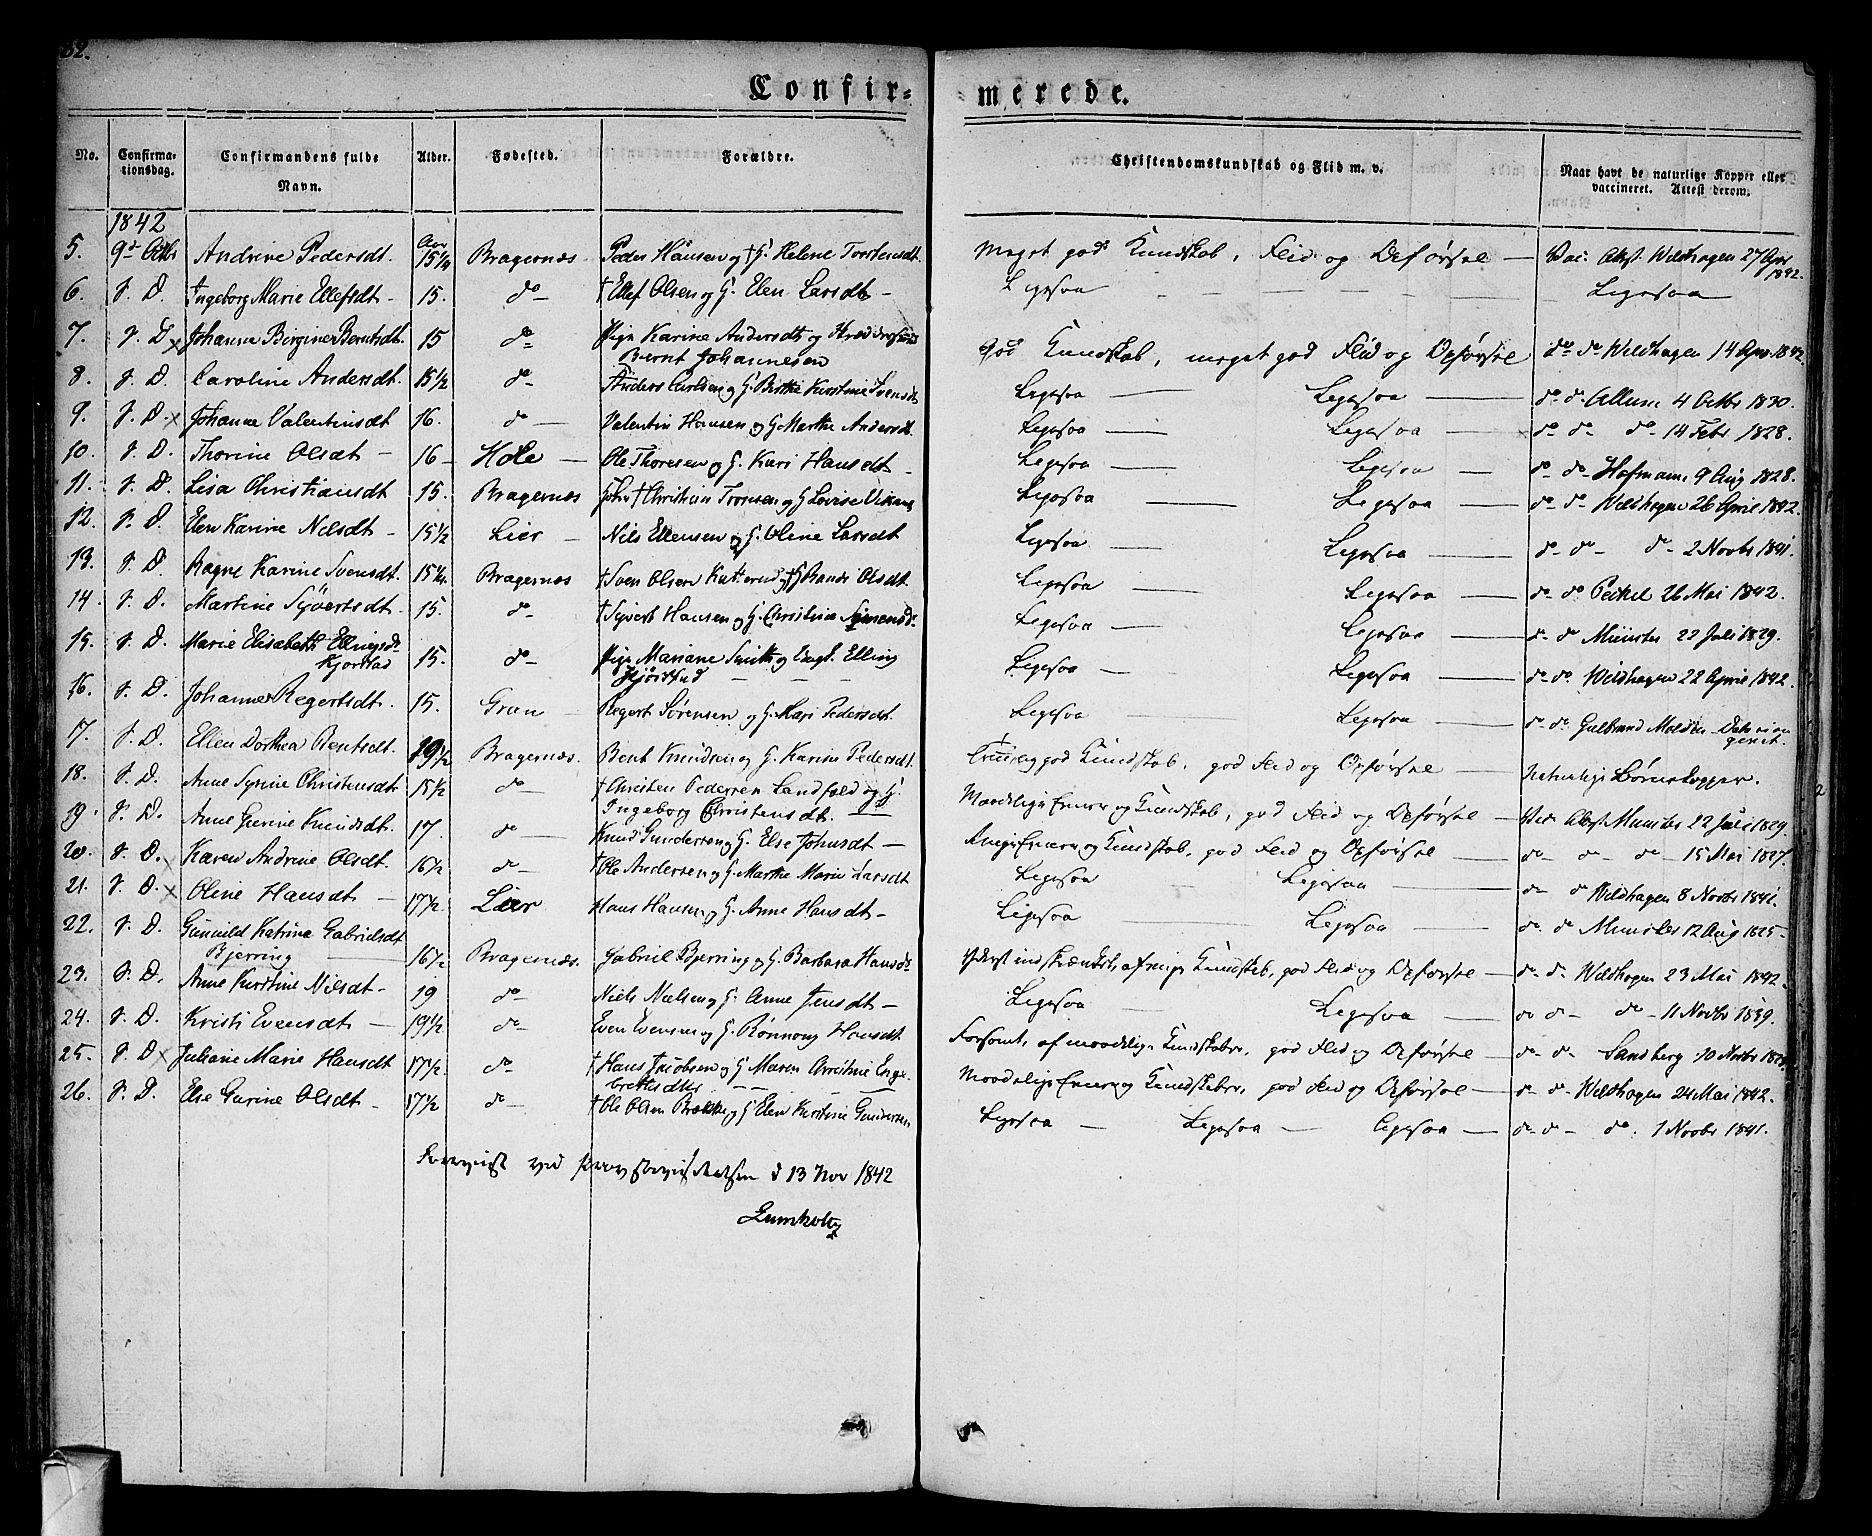 82.
Confir- merede.
No. Confirma- tionsdag. Confirmandens fulde Navn. Alder. Fødested. Forældre. Christendomskundskab og Flid m. v. Naar havt de naturlige Kopper eller vaccineret. Attest derom.
1842
5. 9d Octbr Andrine Pedersdt. Aar 15 1/4 Bragernæs Peder Hansen og † G. Helene Torstensdt. Meget god Kundskab, Flid og Opførsel — Vac. Attest Wildhagen 27 Apr 1842.
6. S. D. Ingeborg Marie Ellefsdt — 15. do — † Ellef Olsen og G. Elen Larsdt — Ligesaa — Ligesaa
7. S. D. x Johanne Birgine Berntsdt. 15 do Pige Karine Andersdt og
Bernt Johannesen God Kundskab, meget god Flid og Opførsel do do Wildhagen 14 Apr. 1842.
8. S. D. Caroline Andersdt. 15 1/2 do — Anders Carlsen og G. Birthe Kirstine Svensdt Ligesaa — Ligesaa — do d. Allum 4 Octbr 1830.
9. S. D. x Johanne Valentinsdt 16. do — Valentin Hansen og G. Marthe Andersdt. Ligesaa — Ligesaa — do do do 14 Febr 1828.
10. S. D. Thorine Olsdt — 16 — Hole — Ole Thoresen og G. Kari Hansdt — Ligesaa — Ligesaa — do do Hofmann 9 Aug 1828.
11. S. D. Lisa Christiansdt 15. Bragernæs † Christian Tronsen og G. Lovise Ligesaa — Ligesaa — do do Wildhagen 26 April 1842.
12. S. D. Elen Karine Nilsdt — 15 1/2 Lier — Nils Ellensen og G. Oline Larsdt Ligesaa — Ligesaa — do do — do 2 Novbr 1841.
13. S. D. Ragne Karine Svensdt. 15 1/4. Bragernæs † Sven Olsen og † G. Randi Olsdt. Ligesaa — Ligesaa — do do 26 Mai 1842.
14. S. D. Martine Syvertsdt. 15. do — † Syvert Hansen og G. Christine Simensdt. Ligesaa — Ligesaa — do do Münster 22 Juli 1829.
15. S. D. Marie Elisabeth Ellingsdt
Kjorstad 15. do — Pige Mariane Smith og Elling
Kjorstad Ligesaa — Ligesaa — do do Wildhagen 22 April 1842.
16. S. D. Johanne Regertsdt. 15. Gran — Regert Sørensen og G. Mari Pedersdt. Ligesaa — Ligesaa — do do Gulbrand Molden
17. S. D. Ellen Dorthea Bentsdt. 19 1/2 Bragernæs. Bent Knudsen og G. Karine Pedersdt. Temmelig god Kundskab, god Flid og Opførsel — Naturlige Børnekopper.
18. S. D. Anne Syrine Christensdt 15 1/2 do — † Christen Pedersen Landfald og G.
Ingeborg Christensdt. Maadelige Evner og Kundskab, god Flid og Opførsel — Vac. Attest Münster 22 Juli 1829
19. S. D. Anne Gurine Knudsdt. 17. do — Knud Gundersen og G. Else Johnsdt — Ringe Evner og Kundskab, god Flid og Opførsel — do — do — do — 15 Mai 1827.
20. S. D. x Karen Andrine Olsdt. 16 1/2 do — † Ole Andersen og G. Marthe Marie Larsdt Ligesaa Ligesaa — do — d Wildhagen 8 Novbr 1841.
21. S. D. x Oline Hansdt — 17 1/2. Lier Hans Hansen og G. Anne Hansdt — Ligesaa Ligesaa — do do Münster 12 Aug 1825 —
22. S. D. Gunnild Katrine Gabrielsdt
Bjerring 16 1/2 Bragernæs. Gabriel Bjerring og G. Barbara Hansdt Yderst indskrænket, af ringe Kundskab, god Flid og Opførsel — do do Wildhagen 23 Mai 1842.
23. S. D. Anne Kirstine Nilsdt — 19 do — Niels Nielsen og G. Anne Jensdt — Ligesaa Ligesaa — do do — do — 11 Novbr 1839.
24. S. D. Kristi Evensdt — 19 1/2 do — Even Evensen og G. Rønnaug Hansdt. Forsømt, af maadelige Kundskaber, god Flid og Opførsel — do do — Sandberg 10 Novbr
25. S. D. x Juliane Marie Hansdt 17 1/2. do — † Hans Jacobsen og G. Maren Christine Enge-
bretsdt. Maadelige Evner og Kundskaber, god Flid og Opførsel — do do — Wildhagen 24 Mai 1842.
26. S. D. Else Gurine Olsdt — 17 1/2 do — † Ole Olsen Brække og G. Elen Kirstine Gundersen Ligesaa — Ligesaa — Ligesaa — do do — do. 1 Novbr 1841.
Foreviist ved Provstevisitatsen d 13 Nov 1842
Lumholtz